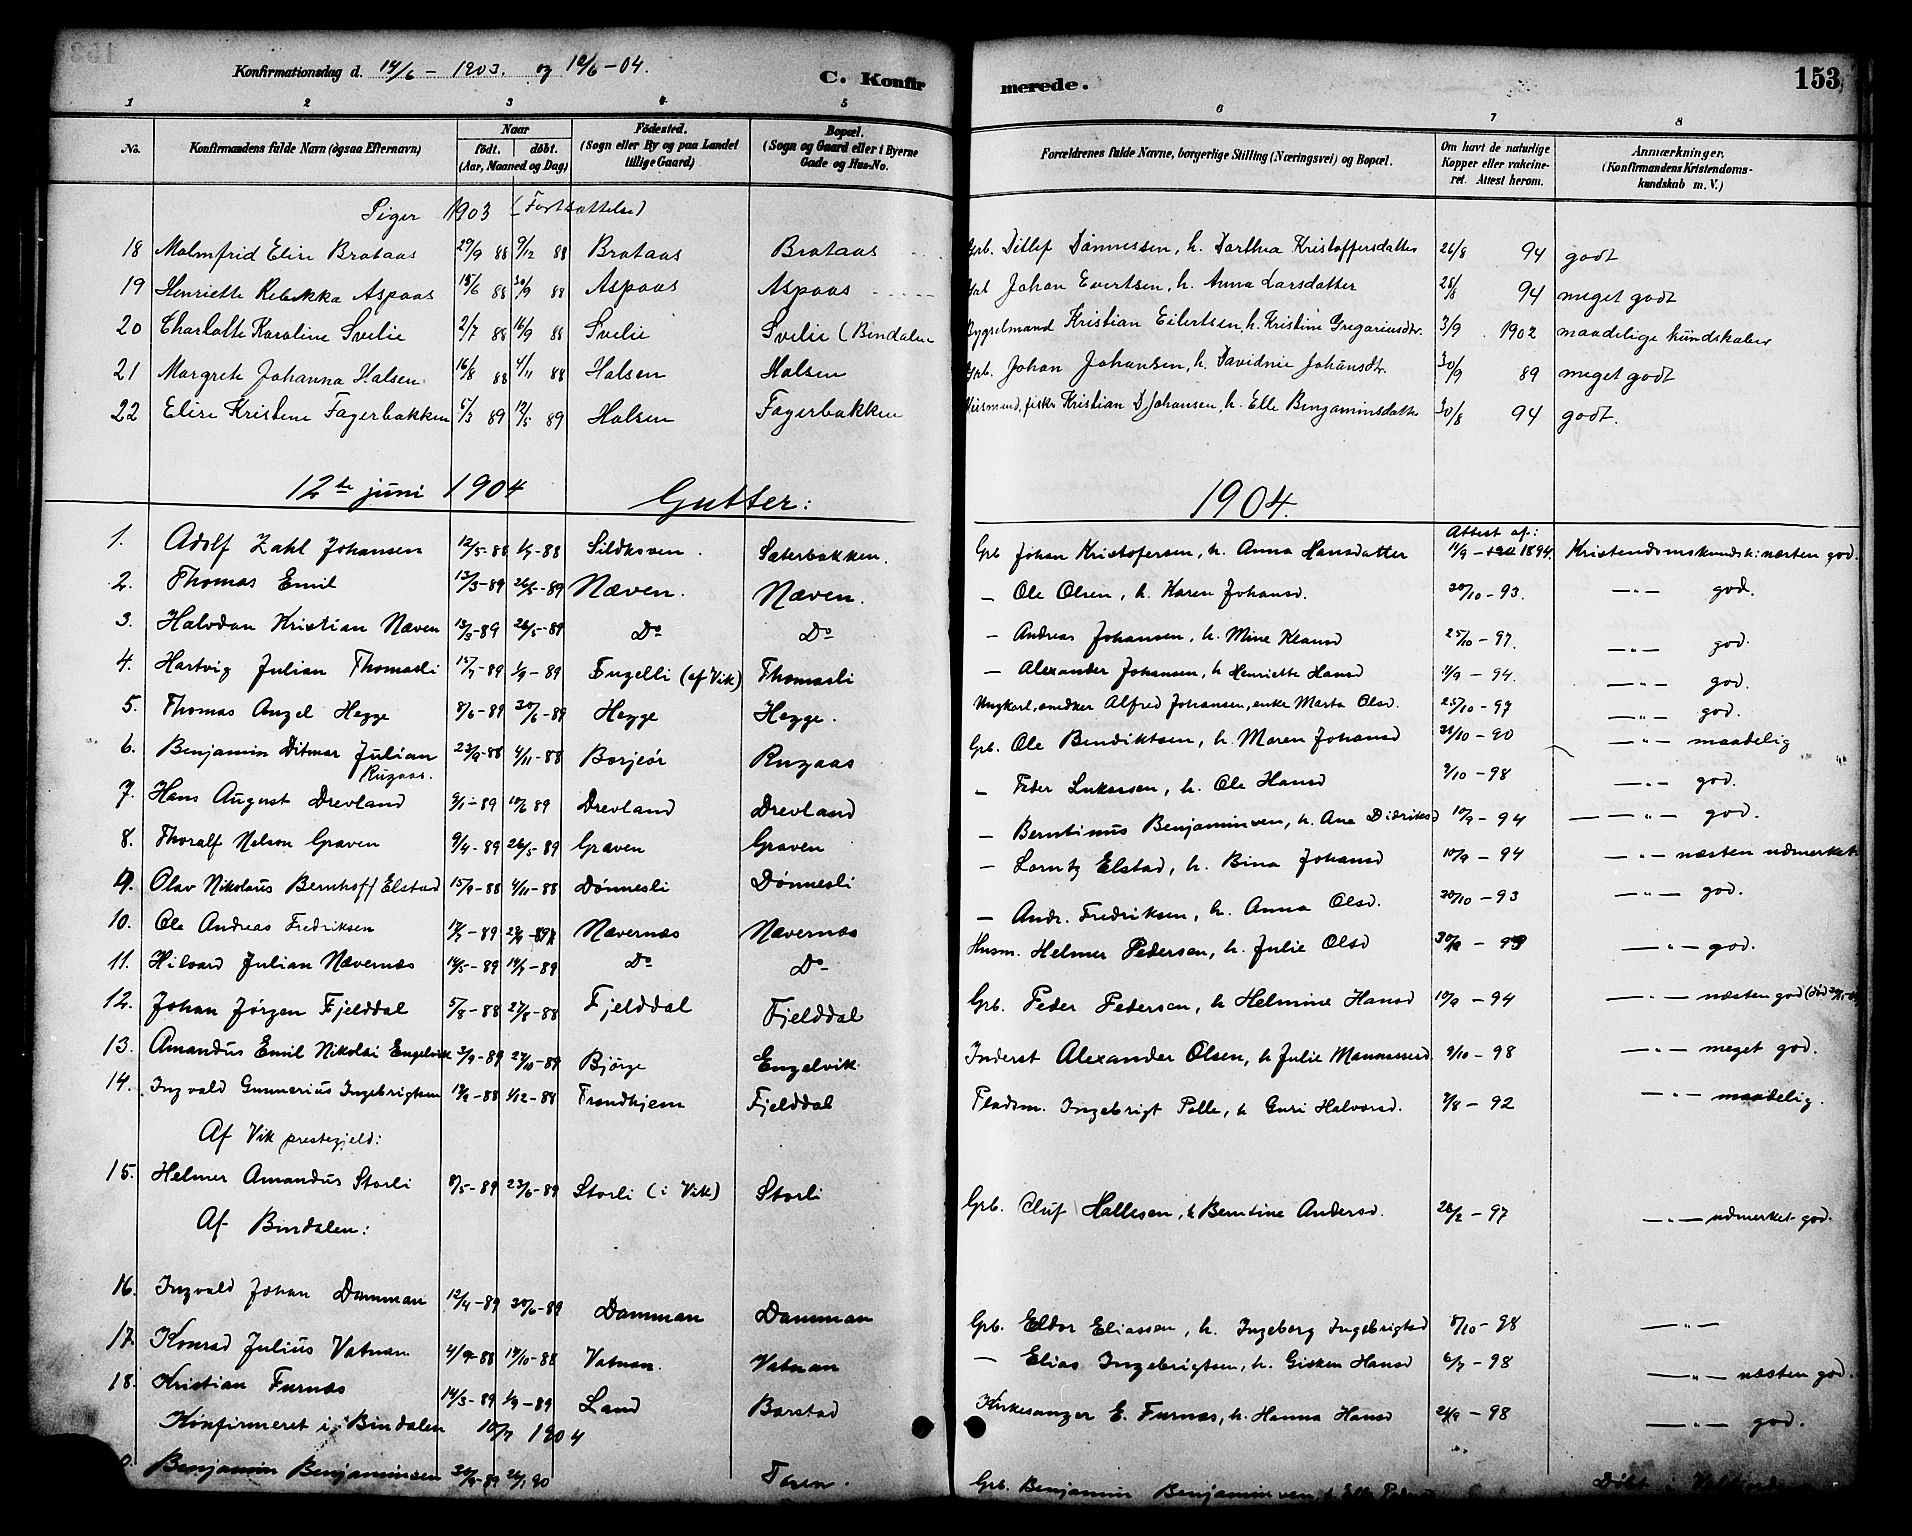 Konfirmationsdag d. 14/6 - 1903. og 12/6 - 04. C. Konfirmerede. 153
1 2 3 4 5 6 7 8
No. Konfirmandens fulde Navn (ogsaa Efternavn) Naar født. døbt. (Aar, Maaned og Dag) Födested. (Sogn eller By og paa Landet tillige Gaard) Bopæl. (Sogn og Gaard eller i Byerne Gade og Hus-No. Forældrenes fulde Navne, borgerlige Stilling (Næringsvei) og Bopæl. Om havt de naturlige Kopper eller vakcineret. Attest herom. Anmærkninger. (Konfirmandens Kristendomskundskab m. V.)
Piger 1903 (Fortsættelse)
18 Malmfrid Elise Brataas 29/9 88 9/12 88 Brataas Brataas Grb. Ditlef Dønnessen, h. Dorthea Kristoffersdatter 26/8 94 godt
19 Henriette Rebekka Aspaas 18/6 88 30/9 88 Aspaas Aspaas Grb Johan Evertsen, h. Anna Larsdatter 28/8 94 meget godt
20 Charlotte Karoline Svelie 2/7 88 16/9 88 Svelie Svelie (Bindalen Bygselmand Kristian Eilertsen, h. Kristine Gregariusdtr. 3/9 1902 maadelige kundskaber
21 Margrete Johanna Halsen 16/8 88 4/11 88 Halsen Halsen Grb. Johan Johansen, h. Davidnie Johansdtr. 30/9 89 meget godt
22 Elise Kristine Fagerbakken 5/3 89 12/5 89 Halsen Fagerbakken Husmand, fisker Kristian D Johansen, h. Elle Benjaminsdatter 30/8 94 godt.
12te juni 1904 Gutter: 1904.
1. Adolf Zahl Johansen 12/5-88 1/7-88 Sæterbakken. Grb Johan Kristofersen, h. Anna Hansdatter Attest af: 11/9 - 1894. Kristendomskundsk: næsten god.
2. Thomas Emil 13/3-89 26/5-89 Næven. Næven. — Ole Olsen, h. Karen Johansd. 30/10 - 93. —"— god.
3. Halvdan Kristian Næven 13/3-89 26/5-89 Do Do — Andreas Johansen, h. Mine Klausd 25/10 - 97. —"— god.
4. Hartvig Julian Thomasli 15/7-89 1/9-89 Engelli (af Vik) Thomasli — Alexander Johansen, h Henriette Hansd 11/9 - 94. —"— god.
5. Thomas Angel Hegge 8/6-89 30/6-89 Hegge Hegge. Ungkarl, snedker Alfred Johansen, enke Marta Olsd. 25/10 - 97 —"— god.
6. Benjamin Ditmar Julian Rugaas. 23/9-88 4/11-88 Borjeør Rugaas Grb. Ole Bendiktsen, h. Maren Johansd 31/10 - 90 —"— maadelig
7. Hans August Drevland 9/1-89 10/6 89 Drevland Drevland — Peder Lukassen, h. Ole Hansd 9/10 - 98 —"— god.
8. Thoralf Nelson Graven 9/4-89 26/5-89 Graven Graven — Berntinus Benjaminsen, h. Ane Didriksd 10/9 - 94 —"— god.
9. Olav Nikolaus Bernhoff Elstad 15/9-88 4/11-88 Dønnesli Dønnesli — Lorntz Elstad, h. Bina Johansd 10/9 - 94 —"— næsten udmerket
10. Ole Andreas Fredriksen Nævernæs Nævernæs — Andr. Fredriksen, h. Anna Olsd. 30/10 - 93 —"— god.
11. Hilvard Julian Nævernæs 14/5-89 14/7-89 Do Do Husm. Helmer Pedersen, h. Julie Olsd —"— god.
12. Johan Jörgen Fjelddal 5/8-88 27/8-88 Fjelddal Fjelddal Grb. Peder Pedersen, h Helmine Hansd 10/9 - 94 —"— næsten god
13. Amandus Emil Nikolai Engelvik 3/9-89 27/10-89 Bjørge Engelvik Inderst Alexander Olsen, h Julie Mannasesd 9/10 - 98 —"— meget god.
14. Ingvald Gunnerius Ingebrigtsen 1/12-88 Trondhjem Fjelddal Pladsm. Ingebrigt Palle, h Guri Halvorsd. 9/8 - 92 —"— maadelig.
Af Vik prestegjeld:
15. Helmer Amandus Storli 8/5-89 23/6-89 Storli (i Vik) Storli Grb. Oluf Hallesen, h Berntine Andersd. 26/2 - 97 —"— udmerket god.
Af Bindalen:
16. Ingvald Johan Damman 12/4-89 30/6-89 Damman Damman Grb. Eldor Eliassen, h. Ingeborg Ingebrigtsd 8/10 - 98 —"—
17. Konrad Julius Vatnan 4/9-88 14/10-88 Vatnan. Vatnan — Elias Ingebrigtsen, h. Gisken Hansd 6/7 - 98 —"— næsten god.
18. Kristian Furnæs 14/3-89 1/9-89 Land Barstad Kirkesanger E. Furnæs, h. Hanna Hansd - 98 —"— god.
Konfirmeret i Bindalen 10/7 1904
Benjamin Benjaminsen 26/1 90 Grb. Benjamin Benjaminsen, h Elle Døbt i